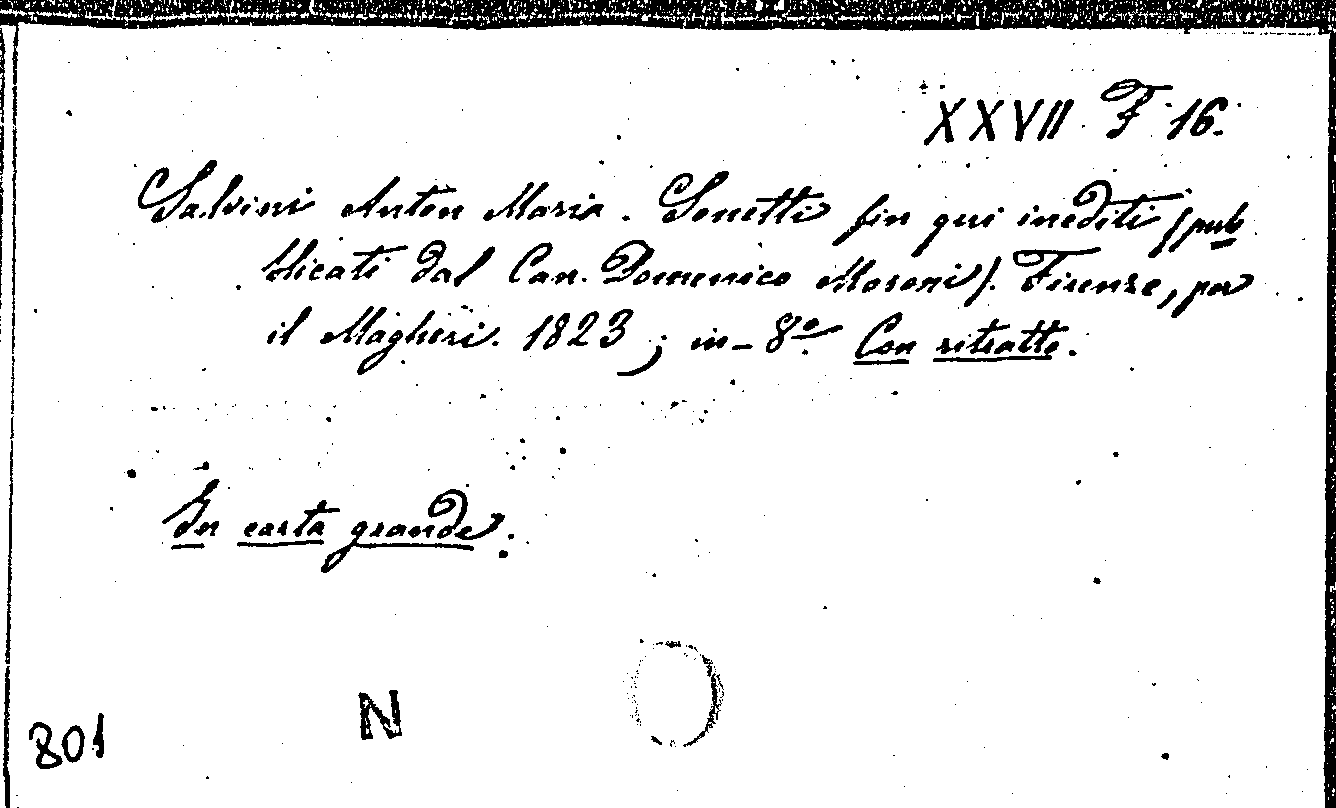 XXVII F 16.
Salvini Anton Maria. Sonetti fin qui inediti (pub
blicati dal Can. Domenico Moreni). Firenze, per
il Magheri. 1823; in-8º. Con ritratto.
In carta grande.
N
801